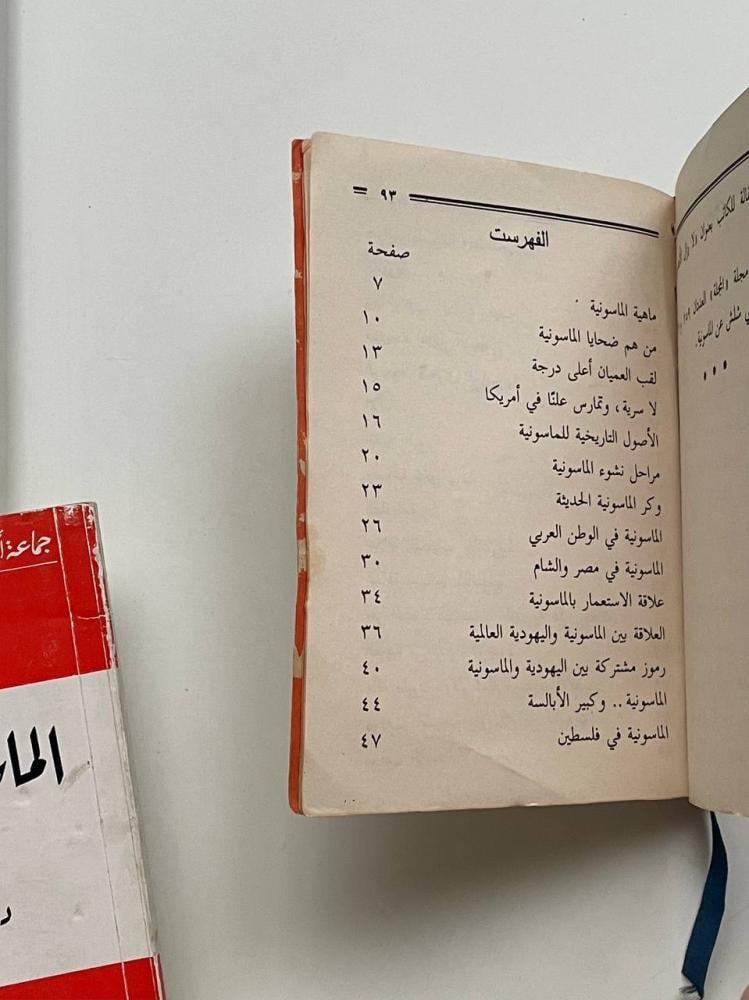 = ٩٣ =
الفهرست
صفحة
ماهية الماسونية ٧
من هم ضحايا الماسونية ١٠
لقب العميان أعلى درجة ١٣
لا سرية، وتمارس علنًا في أمريكا ١٥
الأصول التاريخية للماسونية ١٦
مراحل نشوء الماسونية ٢٠
وكر الماسونية الحديثة ٢٣
الماسونية في الوطن العربي ٢٦
الماسونية في مصر والشام ٣٠
علاقة الاستعمار بالماسونية ٣٤
العلاقة بين الماسونية واليهودية العالمية ٣٦
رموز مشتركة بين اليهودية والماسونية ٤٠
الماسونية .. وكبير الأبالسة ٤٤
الماسونية في فلسطين ٤٧
للكاتب بعنوان
مجلة «المجلة»
شلش عن الماسونية.
جماعة